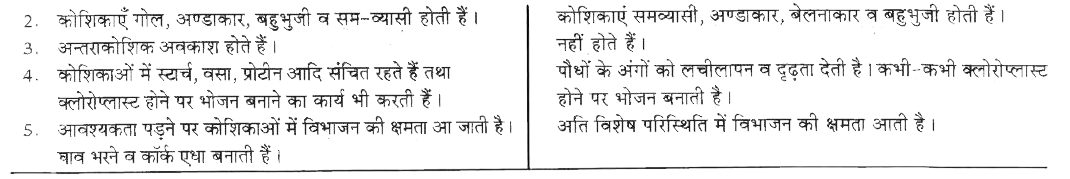 2. कोशिकाएँ गोल, अण्डाकार, बहुभुजी व सम-व्यासी होती हैं।
3. अन्तराकोशिक अवकाश होते हैं।
4. कोशिकाओं में स्टार्च, वसा, प्रोटीन आदि संचित रहते हैं तथा
क्लोरोप्लास्ट होने पर भोजन बनाने का कार्य भी करती हैं।
5. आवश्यकता पड़ने पर कोशिकाओं में विभाजन की क्षमता आ जाती है।
घाव भरने व कॉर्क एधा बनाती हैं।
कोशिकाएं समव्यासी, अण्डाकार, बेलनाकार व बहुभुजी होती हैं।
नहीं होते हैं।
पौधों के अंगों को लचीलापन व दृढ़ता देती है। कभी-कभी क्लोरोप्लास्ट
होने पर भोजन बनाती है।
अति विशेष परिस्थिति में विभाजन की क्षमता आती है।